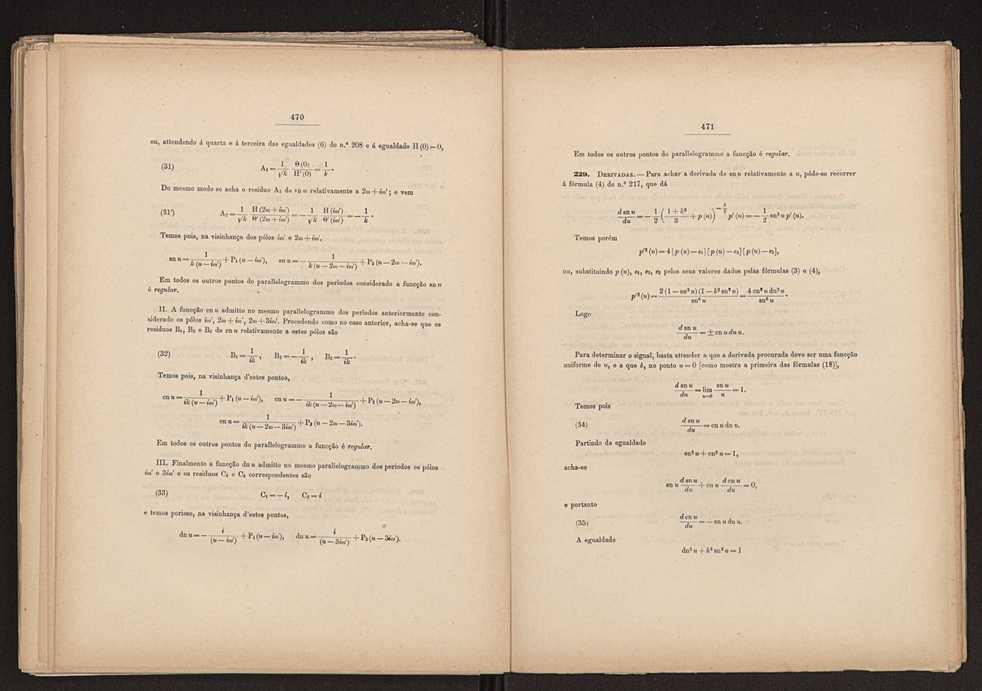 470
ou, attendendo á quarta e á terceira das egualdades (6) do n.º 208 e á egualdade H (0) = 0,
(31) A₁ = 1/√k · Θ(0)/H'(0) = 1/k.
Do mesmo modo se acha o residuo A₂ de sn u relativamente a 2ω + iω'; e vem
(31') A₂ = 1/√k · H(2ω + iω')/Θ'(2ω + iω') = − 1/√k · H(iω')/Θ'(iω') = − 1/k.
Temos pois, na visinhança dos pólos iω' e 2ω + iω',
sn u = 1/k(u − iω') + P₁(u − iω'), sn u = − 1/k(u − 2ω − iω') + P₂(u − 2ω − iω').
Em todos os outros pontos do parallelogrammo dos periodos considerado a funcção sn u
é regular.
II. A funcção cn u admitte no mesmo parallelogrammo dos periodos anteriormente con-
siderado os pólos iω', 2ω + iω', 2ω + 3iω'. Procedendo como no caso anterior, acha-se que os
residuos B₁, B₂ e B₃ de cn u relativamente a estes pólos são
(32) B₁ = 1/ik, B₂ = − 1/ik, B₃ = 1/ik.
Temos pois, na visinhança d'estes pontos,
cn u = 1/ik(u − iω') + P₁(u − iω'), cn u = − 1/ik(u − 2ω − iω') + P₂(u − 2ω − iω'),
cn u = 1/ik(u − 2ω − 3iω') + P₃(u − 2ω − 3iω').
Em todos os outros pontos do parallelogrammo a funcção é regular.
III. Finalmente a funcção dn u admitte no mesmo parallelogrammo dos periodos os pólos
iω' e 3iω' e os residuos C₁ e C₂ correspondentes são
(33) C₁ = − i, C₂ = i
e temos portanto, na visinhança d'estes pontos,
dn u = − i/(u − iω') + P₁(u − iω'), dn u = i/(u − 3iω') + P₂(u − 3iω').
471
Em todos os outros pontos do parallelogrammo a funcção é regular.
229. DERIVADAS. — Para achar a derivada de sn u relativamente a u, póde-se recorrer
á fórmula (4) do n.º 217, que dá
d sn u/du = − 1/2 (1 + k²/3 + p(u))^(−3/2) p'(u) = − 1/2 sn³ u p'(u).
Temos porém
p'²(u) = 4 [p(u) − e₁] [p(u) − e₂] [p(u) − e₃],
ou, substituindo p(u), e₁, e₂, e₃ pelos seus valores dados pelas fórmulas (3) e (4),
p'²(u) = 2 (1 − sn² u)(1 − k² sn² u)/sn⁶ u = 4 cn² u dn² u/sn⁶ u.
Logo
d sn u/du = ± cn u dn u.
Para determinar o signal, basta attender a que a derivada procurada deve ser uma funcção
uniforme de u, e a que é, no ponto u = 0 [como mostra a primeira das fórmulas (18)],
d sn u/du = lim u=0 sn u/u = 1.
Temos pois
(34) d sn u/du = cn u dn u.
Partindo da egualdade
sn² u + cn² u = 1,
acha-se
sn u d sn u/du + cn u d cn u/du = 0,
e portanto
(35) d cn u/du = − sn u dn u.
A egualdade
dn² u + k² sn² u = 1